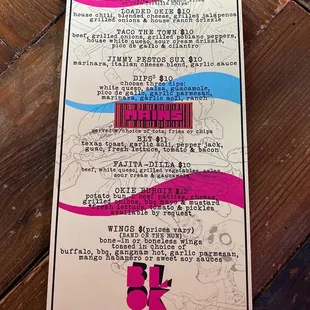 LOADED OKIE $10
house chili, blended cheese, grilled jalapenos
grilled onions & house ranch drizzle
TACO THE TOWN $10
beef, grilled onions, grilled poblano peppers,
house white queso, sour cream drizzle,
pico de gallo & cilantro
JIMMY PESTOS SUX $10
marinara, italian cheese blend, garlic sauce
DIPS³ $10
choose three dips:
white queso, salsa, guacamole,
pico de gallo, garlic parmesan,
marinara, garlic aoli, ranch
MAINS
served w/choice of tots, fries or chips
BLT $11
texas toast, garlic aoli, pepper jack,
guac, fresh lettuce, tomato & bacon
FAJITA-DILLA $10
beef, white queso, grilled vegetables, salsa
sour cream & guacamole
OKIE BURGER $12
potato bun, 2 beef patties, cheese,
grilled onions, bbq mayo & mustard
fresh lettuce, tomato & pickles
available by request
WINGS $(prices vary)
(BAND ON THE RUN)
bone-in or boneless wings
tossed in choice of
buffalo, bbq, gangnam hot, garlic parmesan,
mango habanero or sweet soy sauces
BL
OK